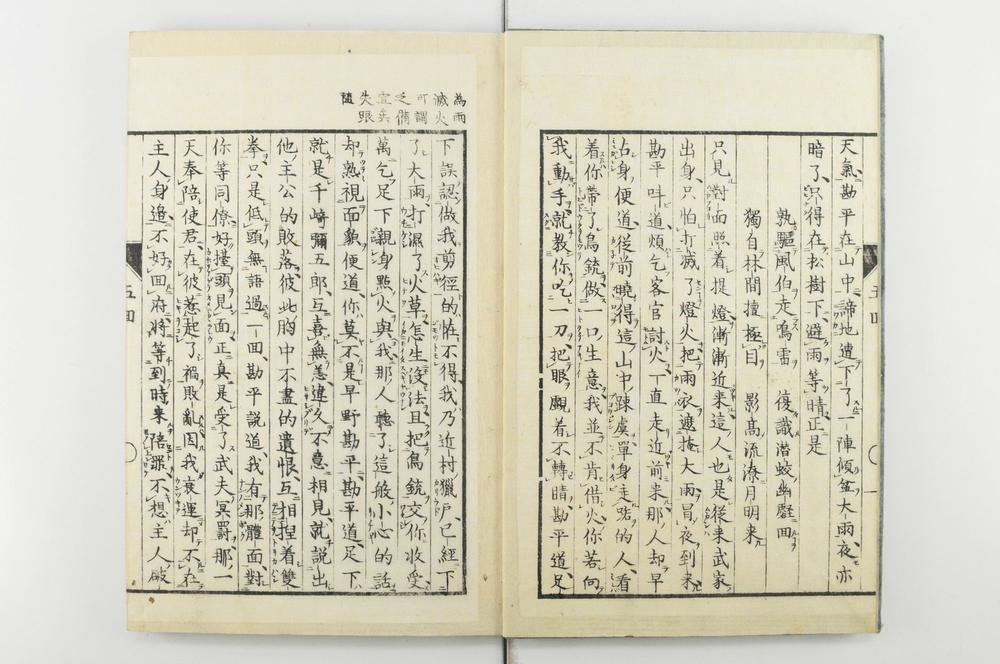 天氣勘平在山中諦地遭下了一陣傾盆大雨夜亦
暗了只得在松樹下避雨等晴正是
孰驅風伯走鳴雷 復識潛蛟幽壑回
獨自林間擅極目 影高流潦月明来
只見對面照着提燈漸漸近来這人也是從来武家
出身只怕打滅了燈火把雨衣遮掩大雨冒夜到来
勘平叫道煩乞客官討火丁直走近前来那人却早
右身便道從前曉得這山中踈虞單身走路的人看
着你帶了鳥銃做一口生意我並不肯借火你若向
我動手就教你吃一刀把眼覷着不轉睛勘平道足
下誤認做我剪徑的恠不得我乃近村獵戶已經下
了大雨打濕了火草怎生沒法且把鳥銃交你收受
萬乞足下親身點火與我那人聽了這般小心的話
却熟視面貌便道你莫不是早野勘平勘平道足下
就是千崎彌五郎互喜無恙違久不意相見就說出
他主公的敗落彼此胸中不盡的遺恨互相捏着雙
拳只是低頭無語過一回勘平説道我有那體面對
你等同僚好擡頭見面正真是受了武夫冥罰那一
天奉陪使君在彼惹起了禍敗亂因我衰運却不在
主人身邊不好面府將等到時来陪罪不想主人敲
為雨
滅火
可謂
之備
宜矣
失眼
隨
五四